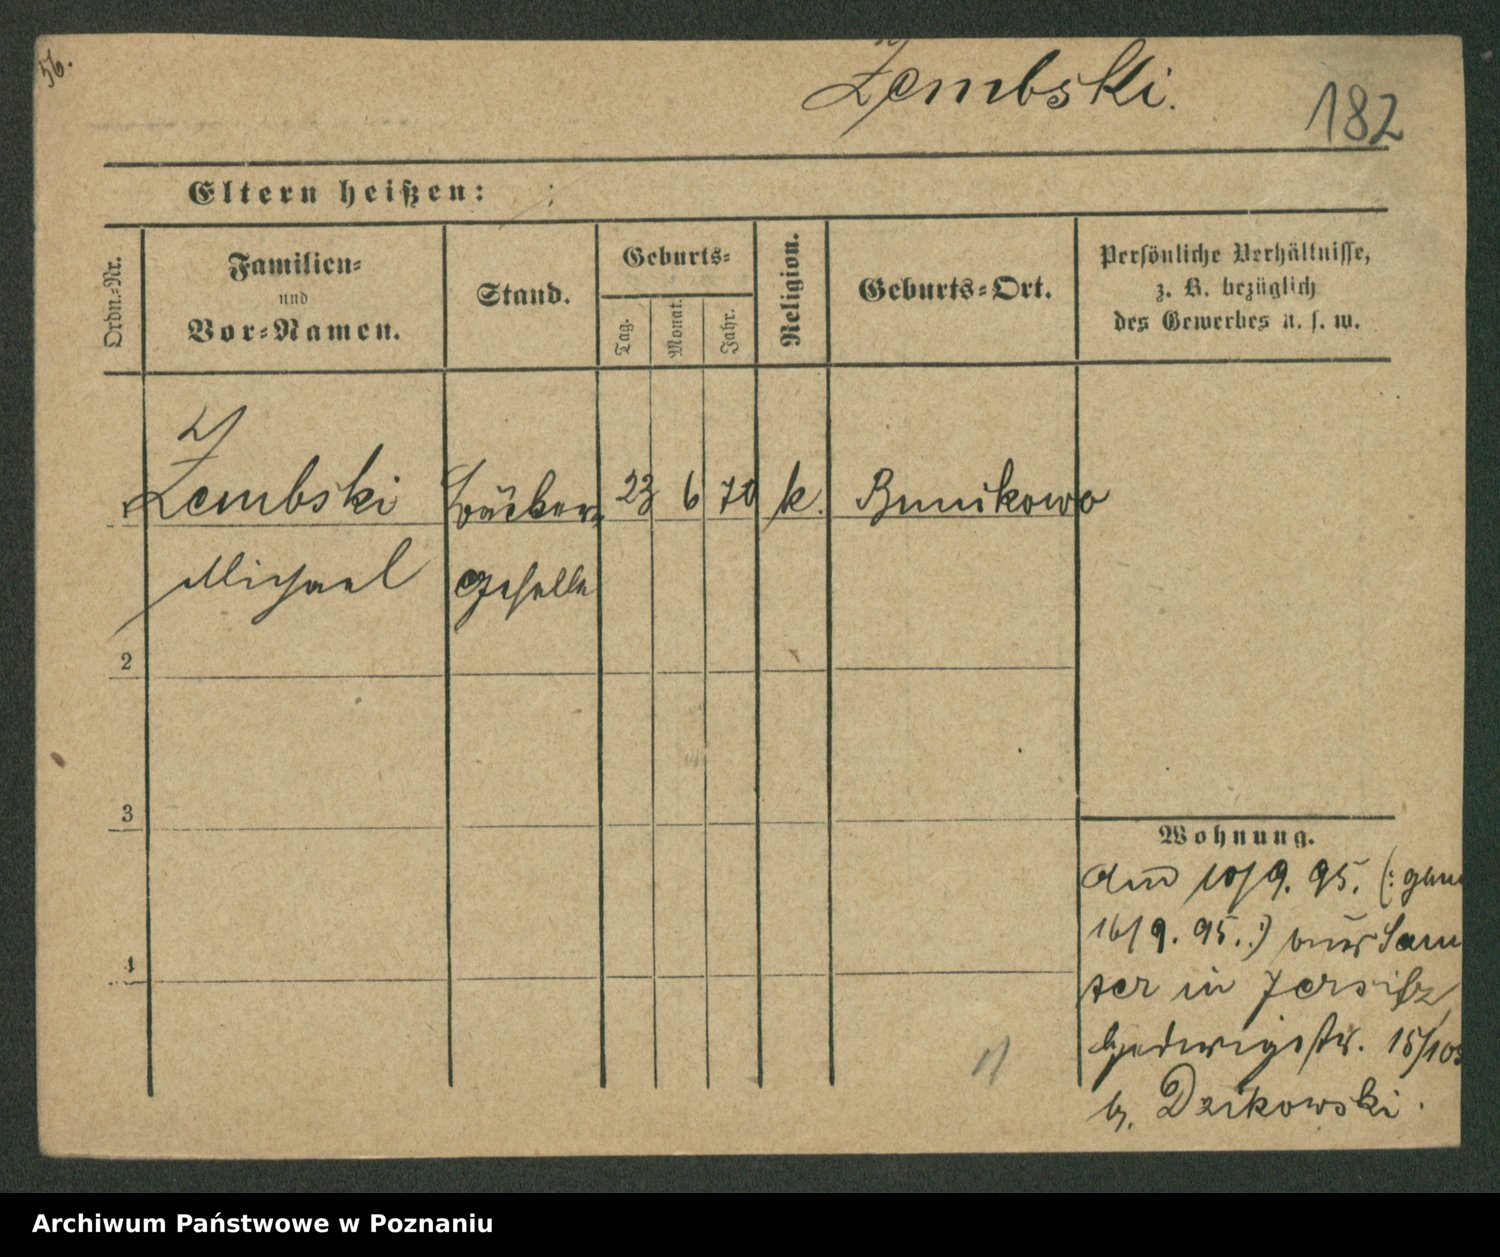 56.
Zembski.
182
Eltern heißen: ;
Ordn.-Nr.
Familien-
und
Vor-Namen.
Stand.
Geburts-
Tag.
Monat.
Jahr.
Religion.
Geburts-Ort.
Persönliche Verhältnisse,
z. B. bezüglich
des Gewerbes u. s. w.
Zembski Bäcker- 23 6 70 k. Bunikowo
Michael Geselle
2
3
4
Wohnung.
am 10/9. 95. (: gem
16/9. 95. :) aus Sam
ter in Jersitz
Hedwigstr. 15/
b. Dzikowski.
Archiwum Państwowe w Poznaniu